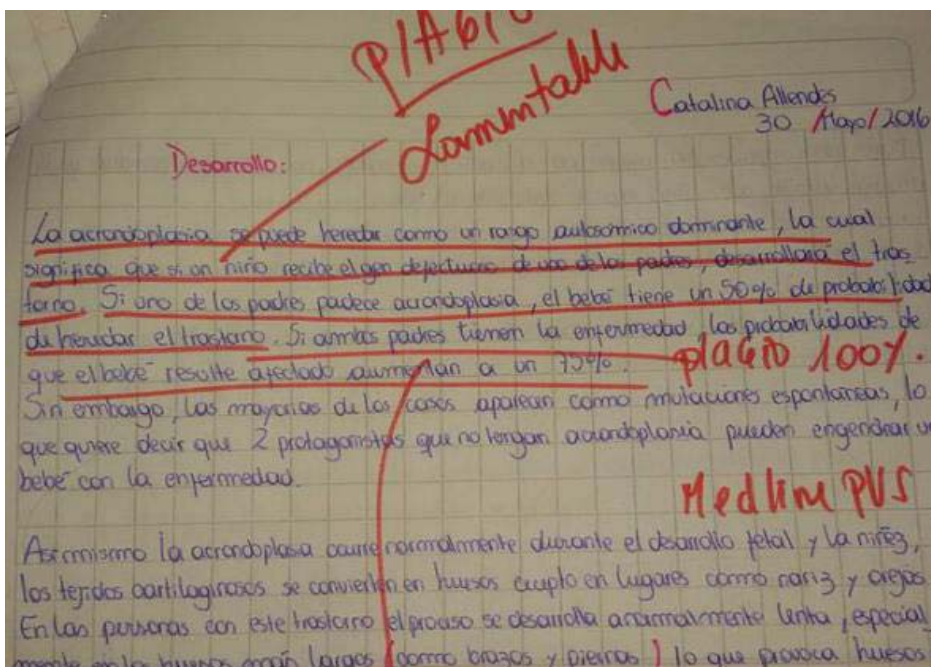 PlAGIO
Lamentable
Catalina Allendes
30 /Mayo/2016
Desarrollo:
La acrondoplasia se puede heredar como un rasgo autosómico dominante, la cual
significa que si un niño recibe el gen defectuoso de uno de los padres, desarrollará el tras
torno. Si uno de los padres padece acrondoplasia, el bebé tiene un 50% de probabilidad
de heredar el trastorno. Si ambos padres tienen la enfermedad, las probabilidades de
que el bebé resulte afectado aumentan a un 75%.
plAGIO 100%.
Sin embargo, las mayorias de los casos aparecen como mutaciones espontaneas, lo
que quiere decir que 2 protagonistas que no tengan acrondoplasia pueden engendrar un
bebé con la enfermedad.
Medline PlUS
Asimismo la acrondoplasa ocurre normalmente durante el desarrollo fetal y la niñez,
los tejidos cartilaginosos se convierten en huesos exepto en lugares como nariz y orejas
En las personas con este trastorno el proceso se desarrolla anormalmente lenta, especial
mente en los huesos más largos (como brazos y piernas) lo que provoca huesos